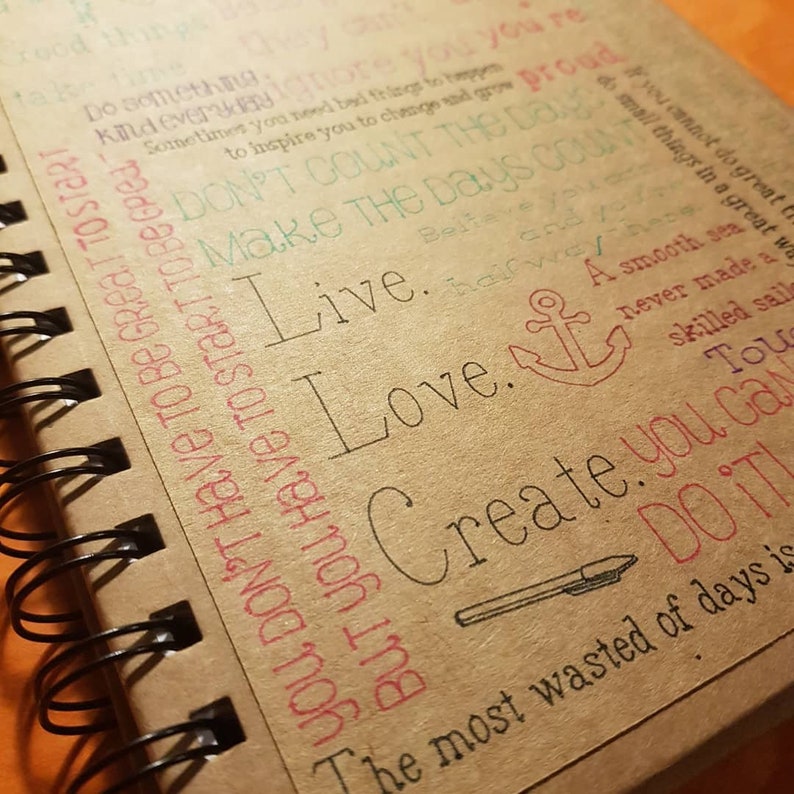 Good things
take time
they can't
ignore you you're
proud
Do something
kind everyday
Sometimes you need bad things to happen
to inspire you to change and grow
If you cannot do great
do small things in a great
DON'T COUNT THE DAYS
MAKE THE DAYS COUNT
Believe you
and you
halfway there.
YOU DON'T HAVE TO BE GREAT TO START
BUT YOU HAVE TO START TO BE GREAT
Live.
Love.
Create.
A smooth sea
never made a
skilled
YOU CAN
DO iT!
The most wasted of days is